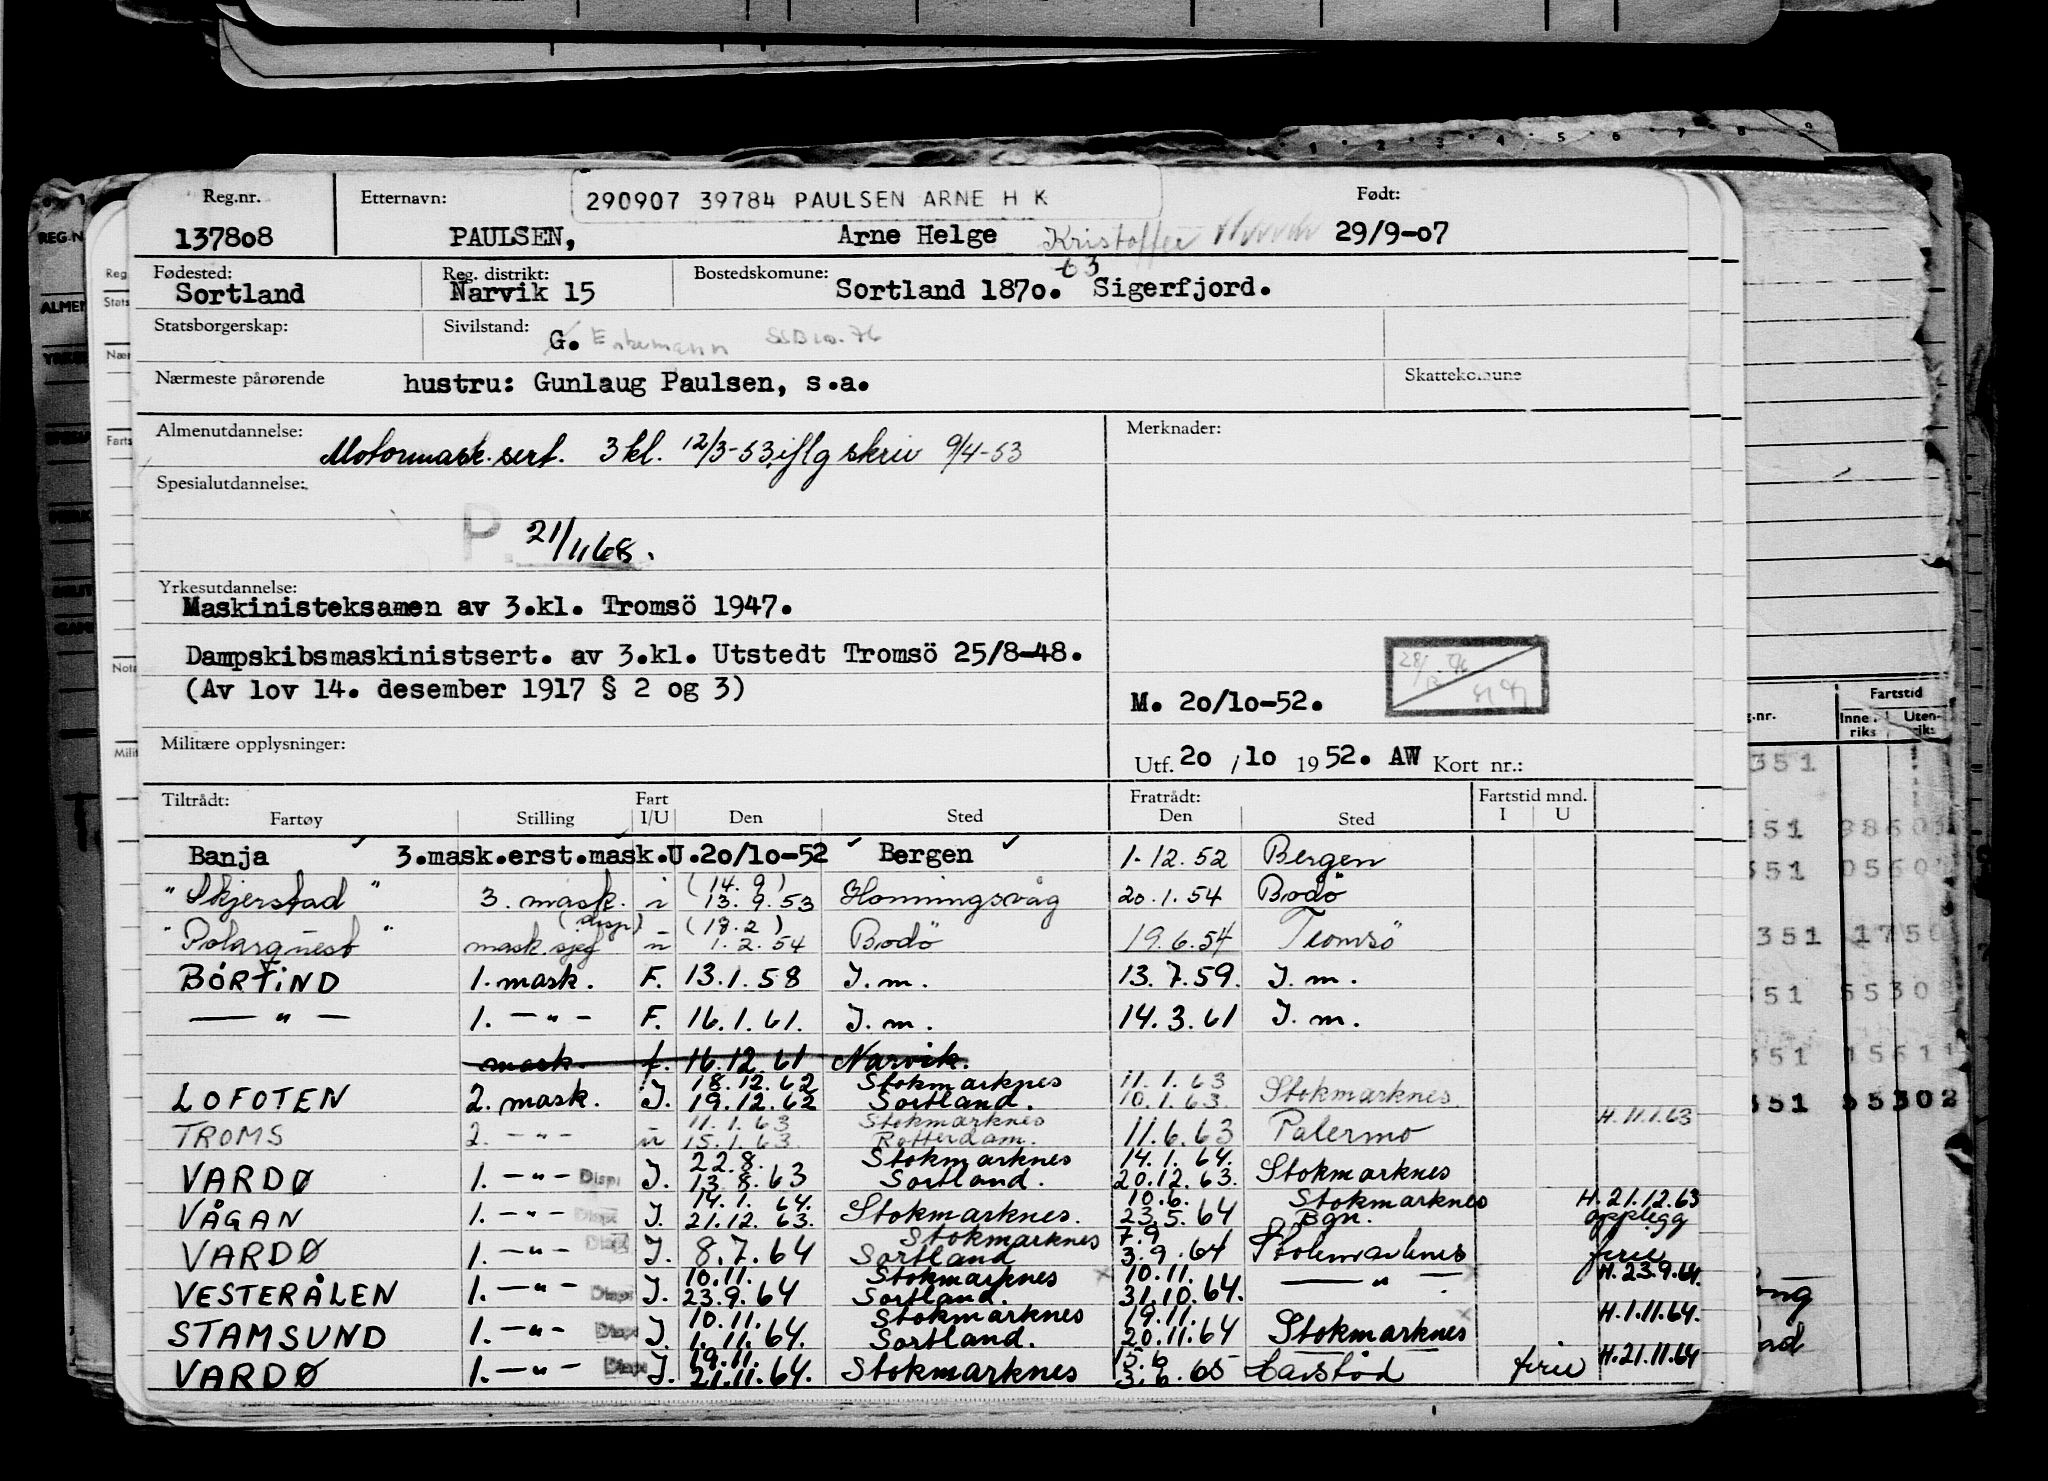 Reg.nr. Etternavn: 290907 39784 PAULSEN ARNE H K Født:
137808 PAULSEN, Arne Helge Kristoffer 29/9-07
Fødested: Reg. distrikt: Bostedskomune:
Sortland Narvik 15 Sortland 1870. Sigerfjord.
Statsborgerskap: Sivilstand: G. Enkemann
Nærmeste pårørende hustru: Gunlaug Paulsen, s.a. Skattekomune
Almenutdannelse: Motormask.sert. 3 kl. 12/3-53, iflg skriv 9/4-53 Merknader:
Spesialutdannelse:
P. 21/11 68.
Yrkesutdannelse:
Maskinisteksamen av 3.kl. Tromsö 1947.
Dampskibsmaskinistsert. av 3.kl. Utstedt Tromsö 25/8-48.
(Av lov 14. desember 1917 § 2 og 3)
M. 20/10-52.
Militære opplysninger: Utf. 20 / 10 1952. AW Kort nr.:
Tiltrådt: Fart Fratrådt: Fartstid mnd.
Fartøy Stilling I/U Den Sted Den Sted I U
Banja 3.mask.erst.mask.U.20/10-52 Bergen 1.12.52 Bergen
"Skjerstad" 3. mask. i (14.9) 13.9.53 Honningsvåg 20.1.54 Bodö
"Polarquest" mask.sjef (disp) u (18.2) 1.2.54 Bodö 19.6.54 Tromsö
BÖRTIND 1. mask. F. 13.1.58 I.m. 13.7.59. I.m.
— " — 1. — " — F. 16.1.61. I.m. 14.3.61 I.m.
mask. f. 16.12.61 Narvik.
18.12.62 Stokmarknes 11.1.63
LOFOTEN 2. mask. I. 19.12.62 Sortland. 10.1.63. Stokmarknes
11.1.63 Stokmarknes H. 11.1.63
TROMS 2. — " — u 15.1.63. Rotterdam. 11.6.63 Palermo
22.8. Stokmarknes 14.1.64.
VARDØ 1. — " — Disp I. 13.8.63 Sortland. 20.12.63. Stokmarknes
14.1.64. 10.6. Stokmarknes H. 21.12.63
VÅGAN 1. — " — Disp I. 21.12.63. Stokmarknes. 23.5.64 Bgn. opplegg
Stokmarknes 7.9
VARDØ 1. — " — Disp I. 8.7.64 Sortland 3.9.64 Stokmarknes ferie
10.11. Stokmarknes 10.11. H. 23.9.64.
VESTERÅLEN 1. — " — Disp I. 23.9.64 Sortland. 31.10.64. — " —
10.11. Stokmarknes 19.11. H. 1.11.64.
STAMSUND 1. — " — Disp I. 1.11.64. Sortland. 20.11.64 Stokmarknes
19.11. 15.6 H. 21.11.64
VARDØ 1. — " — Disp I. 21.11.64. Stokmarknes 3.6.65 Harstad ferie
Fartstid
Inneriks Utenriks
351
351
351
351 1750
351 55302